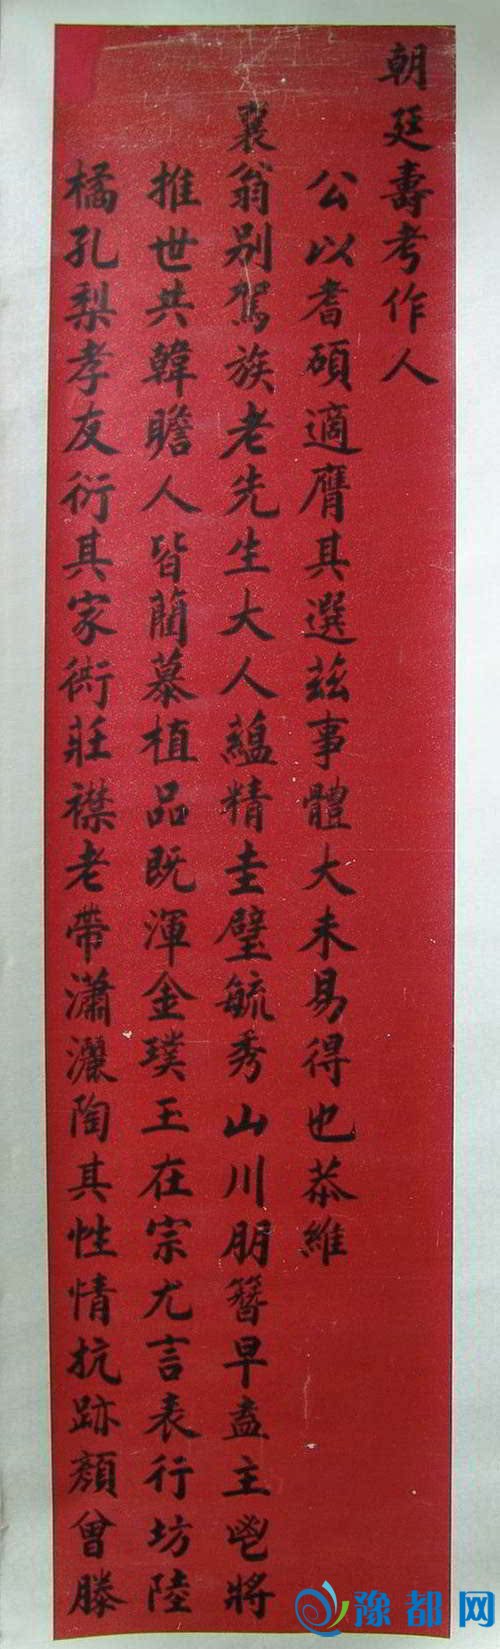 朝廷壽考作人
公以耆碩適膺其選茲事體大未易得也恭維
襄翁别駕族老先生大人蘊精圭璧毓秀山川朋簪早盍主鬯將
推世共韓瞻人皆藺慕植品既渾金璞玉在宗尤言表行坊陸
橘孔梨孝友衍其家術莊襟老帶瀟灑陶其性情抗跡顏曾滕
豫都网